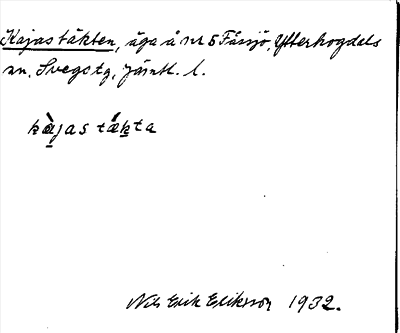 Kajastäkten, äga å nr 5 Fåssjö, Ytterhogdals
sn, Svegs tg, Jämtl. l.
kàjas tǽkta
Nils Erik Eriksson 1932.